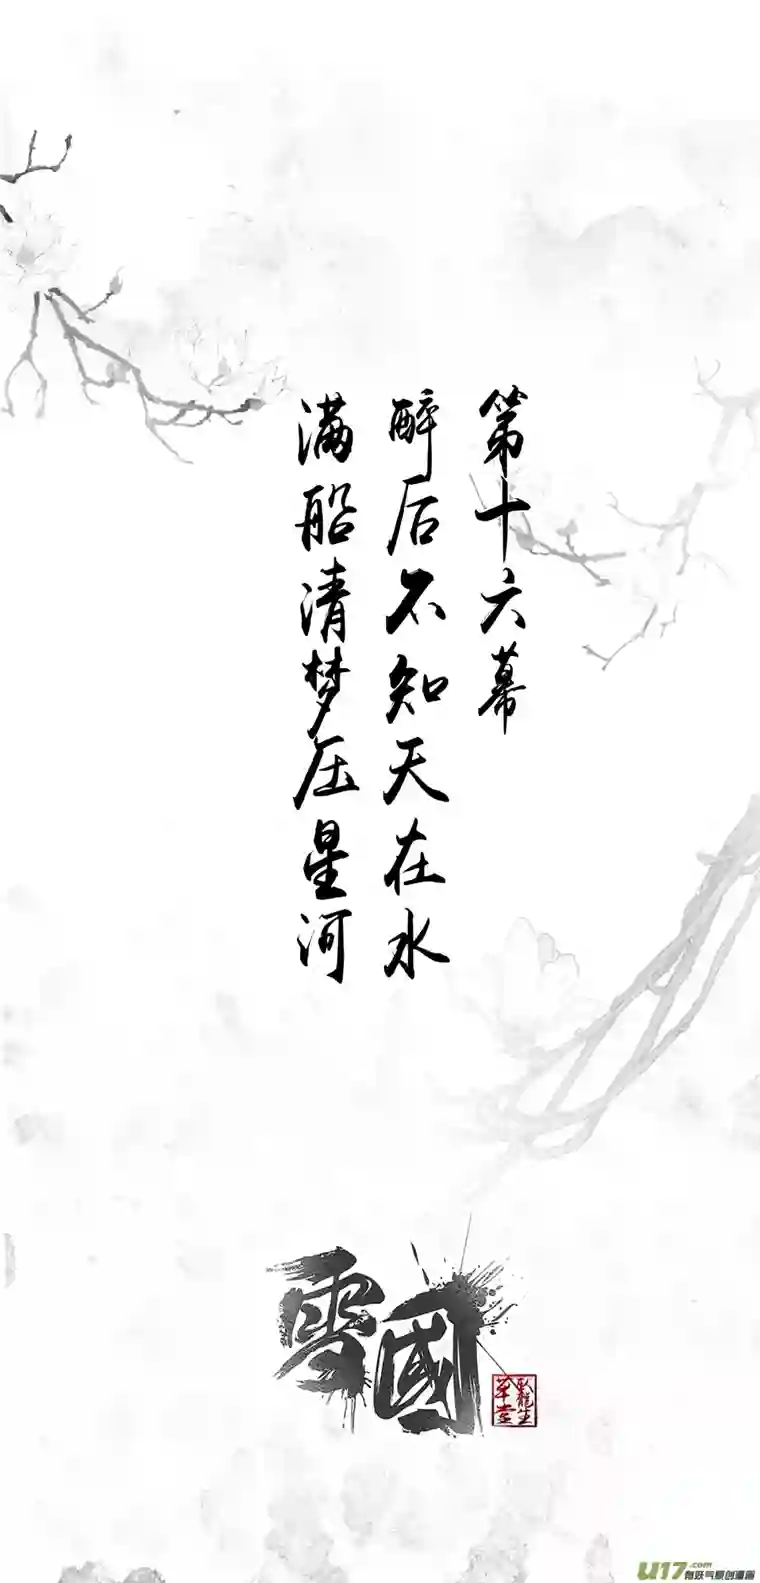 第十六幕
醉后不知天在水
满船清梦压星河
雪國
U17.com
有妖气原创漫画